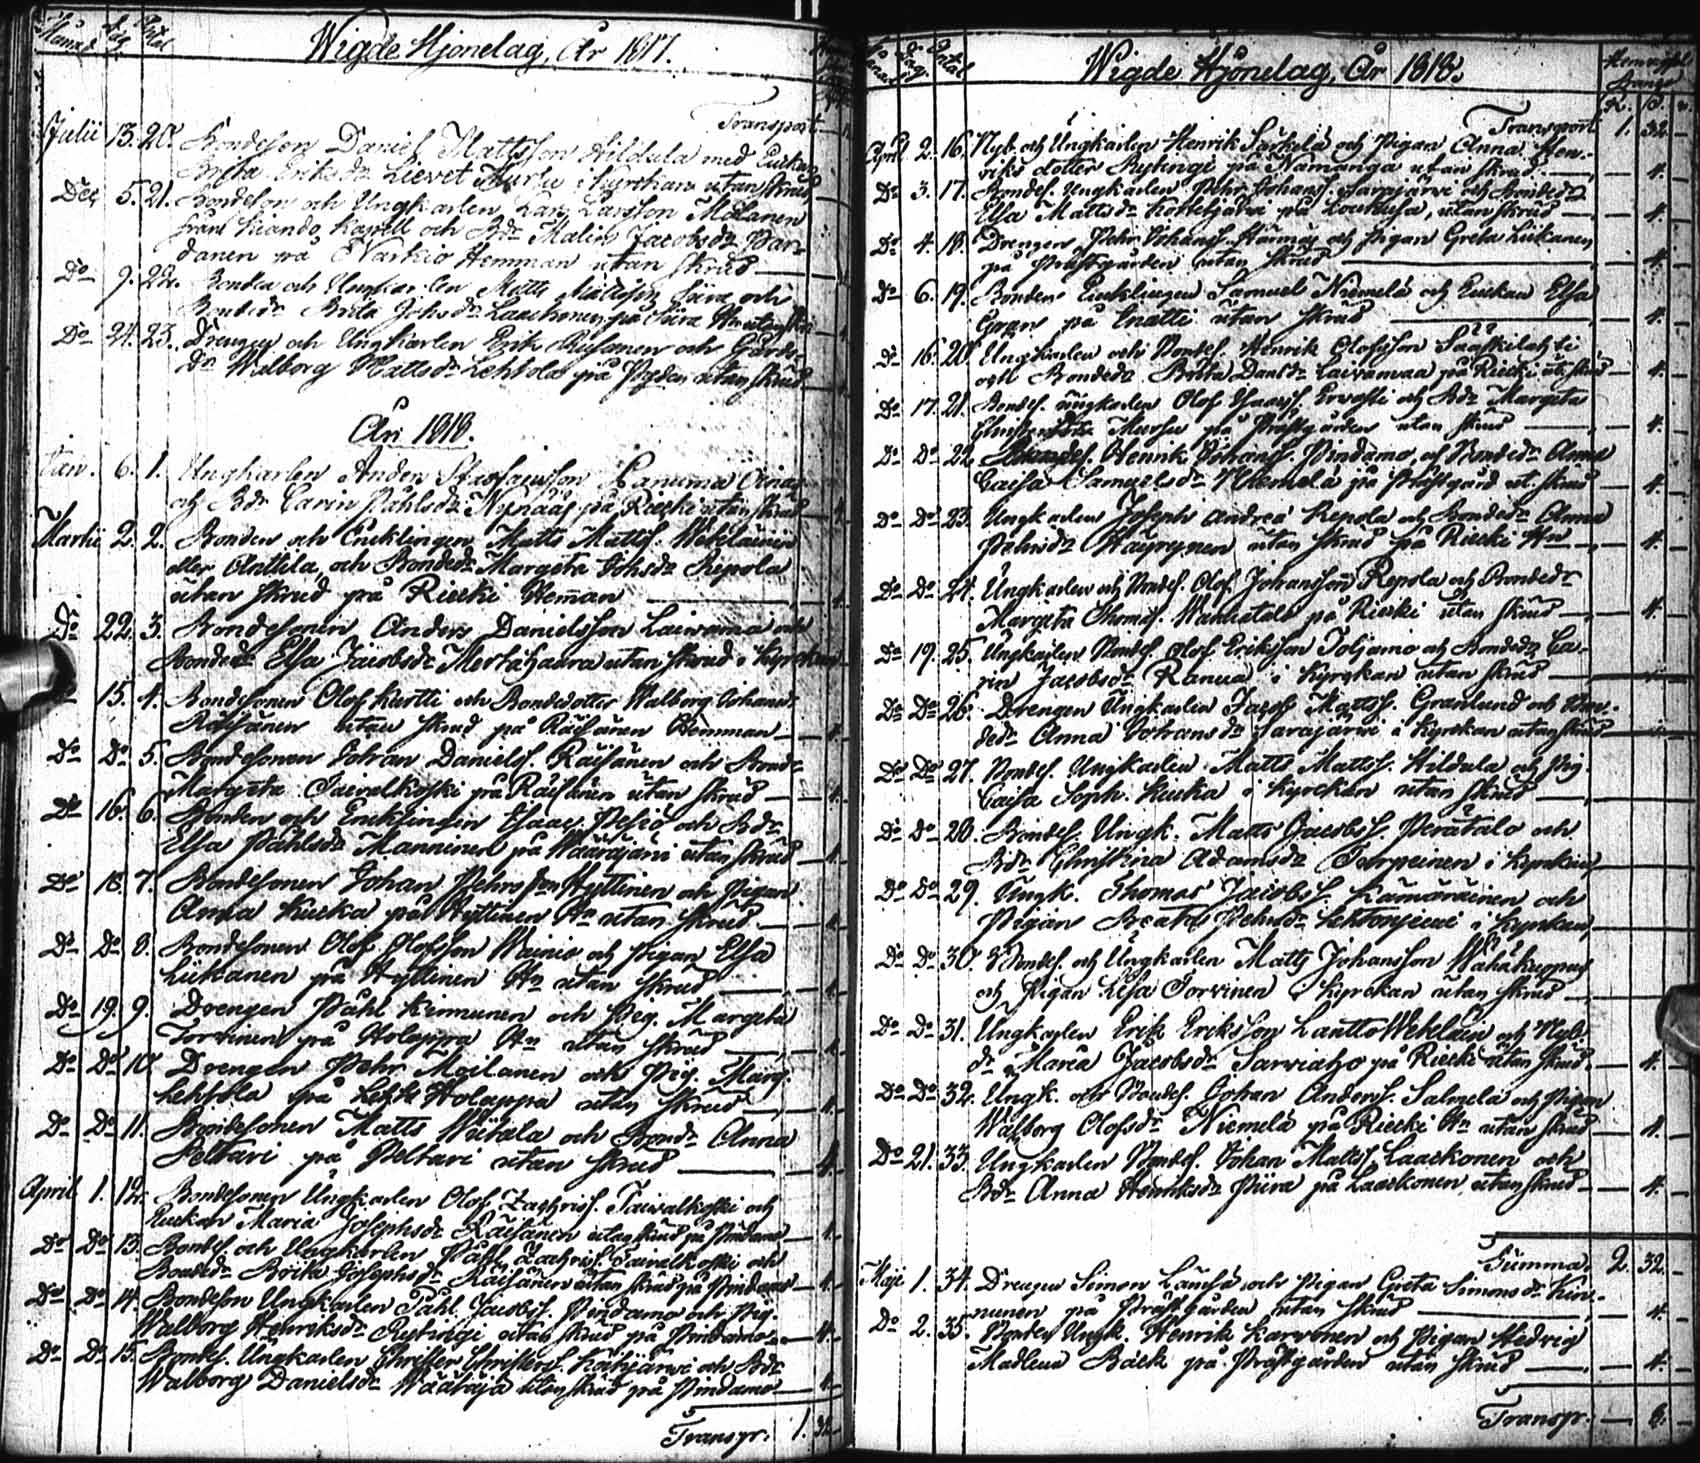 Månad dag Antal
Wigde Hjonelag, År 1817.
Transport
Julii 13. 20. Bondeson Daniel Mattsson Hildula med Enkan
Brita Eriksdr Lievet Mursu i Kyrckan utan Skrud
Dec 5. 21. Bondeson och Ungkarlen Lars Larsson Mölanen
från Kiando Kapell och Bdr Malin Jacobsdr Par-
danen på Narkio Hemman utan Skrud
Do 9. 22. Bonden och Ungkarlen Matts Mattsson Piira och
Bondedr Brita Johsdr Laackonen på Piira Hn utan Skrud
Do 21. 23. Drengen och Ungkarlen Erik Rusanen och Gårds-
dr Walborg Mattsdr Lehtola på utan Skrud
År 1818.
Jan. 6. 1. Ungkarlen Anders Staffansson Lanuma
och Bdr Carin Påhlsdr Nynääs på Riecki utan Skrud
Martii 2. 2. Bonden och Encklingen Matts Mattss. Wekelainin
eller Anttila, och Bondedr Margeta Johsdr Repola
utan Skrud på Riecki Heman
Do 22. 3. Bondesonen Anders Danielsson Laiwama och
Bondedr Elsa Jacobsdr Mertahaara utan Skrud i Kyrckan
15. 4. Bondesonen Olof Kurtti och Bondedotter Walborg Johansd.
Räisänen utan Skrud på Räisänen Hemman
Do Do 5. Bondesonen Johan Daniels. Räisänen och Bond.
Margeta Taivalkoski på Räisänen utan Skrud
Do 16. 6. Bonden och Encklingen Esaac Pesiö och Bdr
Elsa Påhlsdr Manninen på Wäärajärvi utan Skrud
Do 18. 7. Bondesonen Johan Pehrsson Hyttinen och Pigan
Anna Kucka på Hyttinen Hn utan Skrud
Do Do 8. Bondesonen Olof Olofsson Wainio och Pigan Elsa
Liikanen på Hyttinen Hn utan Skrud
Do 19. 9. Drengen Påhl Kinnunen och Pig. Margeta
Torvinen på Holappa Hn utan Skrud
Do Do 10. Drengen Pehr Moilanen och Pig. Marg.
Lehtola på Holappa utan Skrud
Do Do 11. Bondesonen Matts Wiitala och Bondr Anna
Peltari på Peltari utan Skrud
April 1. 12. Bondesonen Ungkarlen Olof Zachriss. Taivalkoski och
Enckan Maria Josephsdr Räisänen utan Skrud på Pindamo
Do Do 13. Bondes. och Ungkarlen Påhl Zachriss. Taivalkoski och
Bondedr Brita Josephsdr Räisänen utan Skrud på Pindamo
Do Do 14. Bondeson Ungkarlen Påhl Jacobss. Pindamo och Pig.
Walborg Henriksdr Rytingi utan Skrud på Pindamo
Do Do 15. Bondes. Ungkarlen Christer Christerss. Kärhjärwi och Bdr
Walborg Danielsdr Wäätäjä utan Skrud på Pindamo
Transpr: 1. 32.
Månad Dag Antal
Wigde Hjonelag, År 1818.
R. S. r.
Transport 1. 32.
April 2. 16. Nyb. och Ungkarlen Henrik Särkelä och Pigan Anna Hen-
riks dotter Rytingi på Nämänga utan Skrud. 4.
Do 3. 17. Bondes. Ungkarlen Pehr Johanss. Sarajärvi och Bondedr
Elsa Mattsdr Kokkojärvi på Loukusa, utan Skrud 4.
Do 4. 18. Drengen Pehr Johanss. och Pigan Greta Liikanen
på Prästgården utan Skrud 4.
Do 6. 19. Bonden Encklingen Samuel Niemelä och Enckan Elsa
Gran på Enatti utan Skrud 4.
Do 16. 20. Ungkarlen och Bondes. Henrik Olofsson Sääskilahti
och Bondedr Brita Danlsdr Laivamaa på Riecki utan Skrud 4.
Do 17. 21. Bondes. Ungkarlen Olof Ervasti och Bdr Margeta
Mursu på Prästgården utan Skrud 4.
Do Do 22. Bondes. Henrik Johanss. Pindamo och Bondedr Anna
Caisa Samuelsdr Niemelä på Prästgård ut. Skrud 4.
Do Do 23. Ungkarlen Joseph Andrea Repola och Bondedr Anna
Pehrsdr Hauryynen utan Skrud på Riecki Hn 4.
Do Do 24. Ungkarlen och Bondes. Olof Johansson Repola och Bondedr
Margeta Thomss. Wanhatalo på Riecki utan Skrud 4.
Do 19. 25. Ungkarlen Bondes. Olof Eriksson Toljamo och Bondedr Ca-
rin Jacobsdr Ranua i Kyrckan utan Skrud
Do Do 26. Drengen Ungkarlen Jacob Mattss. Granlund och Bon-
dedr Anna Johansdr Sarajärwi i Kyrckan utan Skrud
Do Do 27. Bondes. Ungkarlen Matts Mattss. Hildula och Pig.
Caisa Soph. Kucka i Kyrckan utan Skrud
Do Do 28. Bondes. Ungk. Matts Jacobss. Perätalo och
Bdr Christina Adamsdr Torpeinen i Kyrckan
Do Do 29. Ungk. Thomas Jacobss. Kämäräinen och
Pigan Beata Pehrsdr Lehtoniemi i Kyrckan
Do Do 30. Bondes. och Ungkarlen Matts Johansson Wähäkuppas
och Pigan Lisa Torvinen i Kyrckan utan Skrud
Do Do 31. Ungkarlen Erik Eriksson Lantto Wekelän och Nyb.
dr Maria Jacobsdr Sarviaho på Riecki utan Skrud. 4.
Do Do 32. Ungk. och Bondes. Johan Anderss. Salmela och Pigan
Walborg Olofsdr Niemelä på Riecki Hn utan Skrud 4.
Do 21. 33. Ungkarlen Bondes. Johan Mattss. Laackonen och
Bdr Anna Henriksdr Piira på Laackonen, utan Skrud 4.
Summa. 2. 32.
Maji 1. 34. Drengen Simon Lausä och Pigan Greta Simonsdr Kin-
nunen på Prästgården utan Skrud 4.
Do 2. 35. Bonden Ungk. Henrik Karvonen och Pigan Hedvig
Madlena Bäck på Prästgården utan Skrud 4.
Transpr. 8.